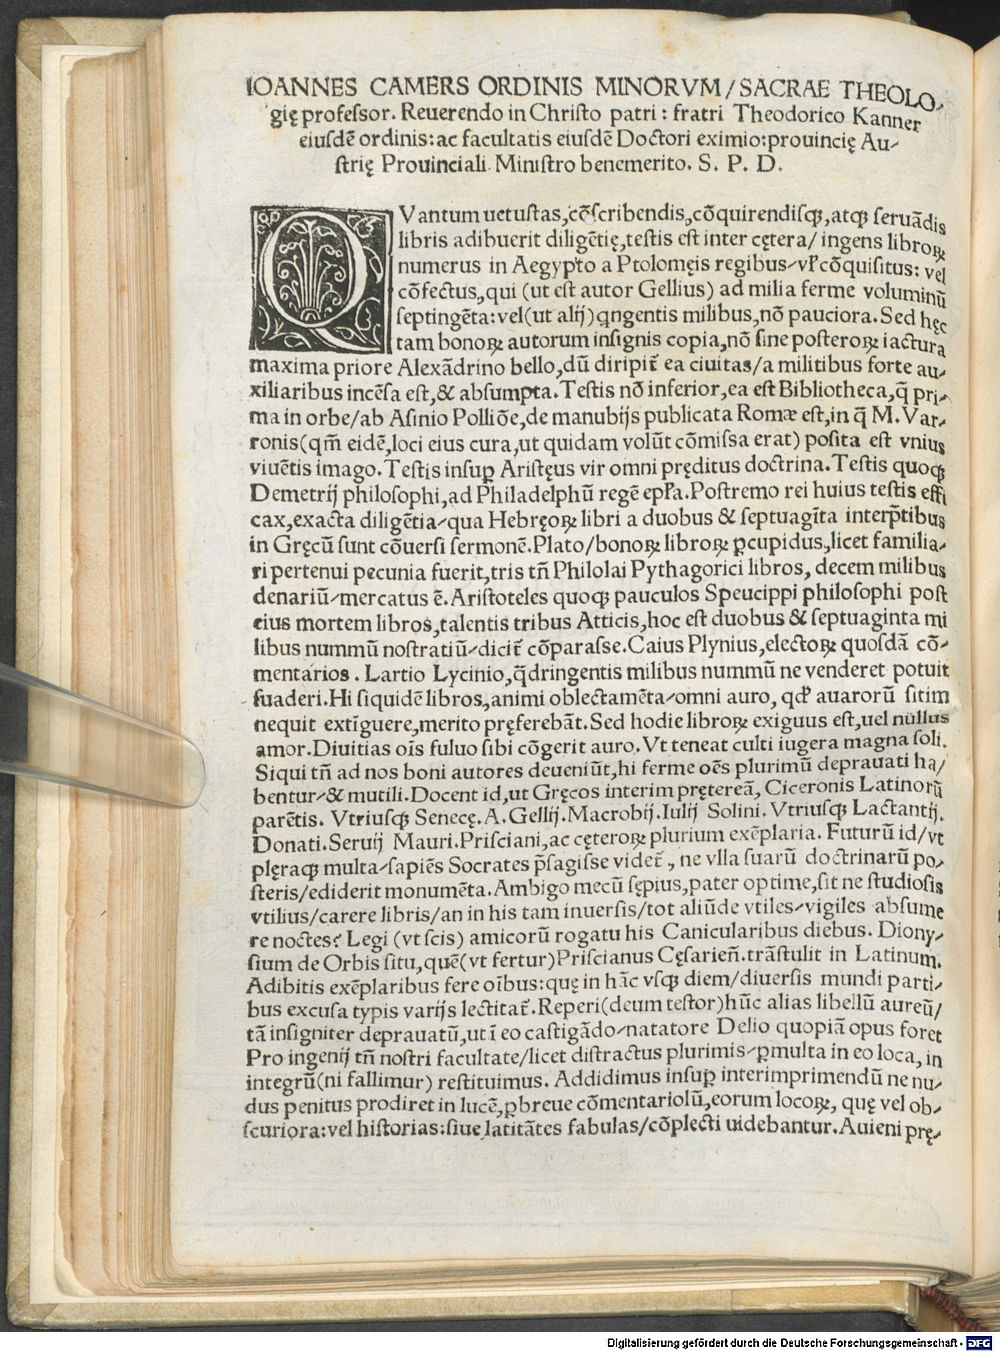 IOANNES CAMERS ORDINIS MINORVM/SACRAE THEOLO⸗
gię professor. Reuerendo in Christo patri: fratri Theodorico Kanner
eiusdē ordinis: ac facultatis eiusdē Doctori eximio: prouincię Au⸗
strię Prouinciali. Ministro benemerito. S. P. D.
QVantum uetustas, cōscribendis, cōquirendisqꝫ, atqꝫ seruādis
libris adibuerit diligētię, testis est inter cętera/ ingens libroꝝ
numerus in Aegypto a Ptolomęis regibus⸗vl̓ cōquisitus: vel
cōfectus, qui (ut est autor Gellius) ad milia ferme voluminū
septingēta: vel(ut alij)qngentis milibus, nō pauciora. Sed hęc
tam bonoꝝ autorum insignis copia, nō sine posteroꝝ iactura
maxima priore Alexādrino bello, dū diripit̄ ea ciuitas/a militibus forte au⸗
xiliaribus incēsa est, & absumpta. Testis nō inferior, ea est Bibliotheca, q̄ pri⸗
ma in orbe/ab Asinio Polliōe, de manubijs publicata Romæ est, in q̄ M. Var⸗
ronis(qm̄ eidē, loci eius cura, ut quidam volūt cōmissa erat) posita est vnius
viuētis imago. Testis insuꝑ Aristęus vir omni pręditus doctrina. Testis quoqꝫ
Demetrij philosophi, ad Philadelphū regē epl̓a. Postremo rei huius testis effi
cax, exacta diligētia⸗qua Hebręoꝝ libri a duobus & septuagīta interp̄tibus
in Gręcū sunt cōuersi sermonē. Plato/bonoꝝ libroꝝ ꝑcupidus, licet familia⸗
ri pertenui pecunia fuerit, tris tn̄ Philolai Pythagorici libros, decem milibus
denariū⸗mercatus ē. Aristoteles quoqꝫ pauculos Speucippi philosophi post
eius mortem libros, talentis tribus Atticis, hoc est duobus & septuaginta mi
libus nummū nostratiū⸗dicit̄ cōparasse. Caius Plynius, electoꝝ quosdā cō⸗
mentarios . Lartio Lycinio, q̄dringentis milibus nummū ne venderet potuit
suaderi. Hi siquidē libros, animi oblectamēta⸗omni auro, qd̓ auarorū sitim
nequit extīguere, merito pręferebāt. Sed hodie libroꝝ exiguus est, uel nullus
amor. Diuitias oīs fuluo sibi cōgerit auro. Vt teneat culti iugera magna soli.
Siqui tn̄ ad nos boni autores deueniūt, hi ferme oēs plurimū deprauati ha/
bentur⸗& mutili. Docent id, ut Gręcos interim prętereā, Ciceronis Latinorū
parētis. Vtriusqꝫ Senecę. A. Gellij. Macrobij. Iulij Solini. Vtriusqꝫ Lactantij.
Donati. Seruij Mauri. Prisciani, ac cęteroꝝ plurium exēplaria. Futurū id/vt
plęraqꝫ multa⸗sapiēs Socrates p̄sagisse videt̄, ne vlla suarū doctrinarū po⸗
steris/ediderit monumēta. Ambigo mecū sępius, pater optime, sit ne studiosis
vtilius/carere libris/an in his tam inuersis/tot aliūde vtiles⸗vigiles absume
re noctes? Legi (vt scis) amicorū rogatu his Canicularibus diebus. Diony⸗
sium de Orbis situ, quē(vt fertur)Priscianus Cęsarieñ. trāstulit in Latinum.
Adibitis exēplaribus fere oībus: quę in hāc vsqꝫ diem/diuersis mundi parti⸗
bus excusa typis varijs lectitat̄. Reperi(deum testor)hūc alias libellū aureū/
tā insigniter deprauatū, ut ī eo castigādo⸗natatore Delio quopiā opus foret
Pro ingenij tn̄ nostri facultate/licet distractus plurimis⸗ꝑmulta in eo loca, in
integrū(ni fallimur) restituimus. Addidimus insuꝑ interimprimendū ne nu⸗
dus penitus prodiret in lucē, ꝑbreue cōmentariolū, eorum locoꝝ, quę vel ob⸗
scuriora: vel historias: siue latitātes fabulas/cōplecti uidebantur. Auieni prę⸗
Digitalisierung gefördert durch die Deutsche Forschungsgemeinschaft - DFG